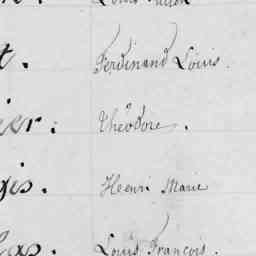 t. Ferdinand Louis.
ier: Théodore.
gis. Henri Marie
las. Louis François.